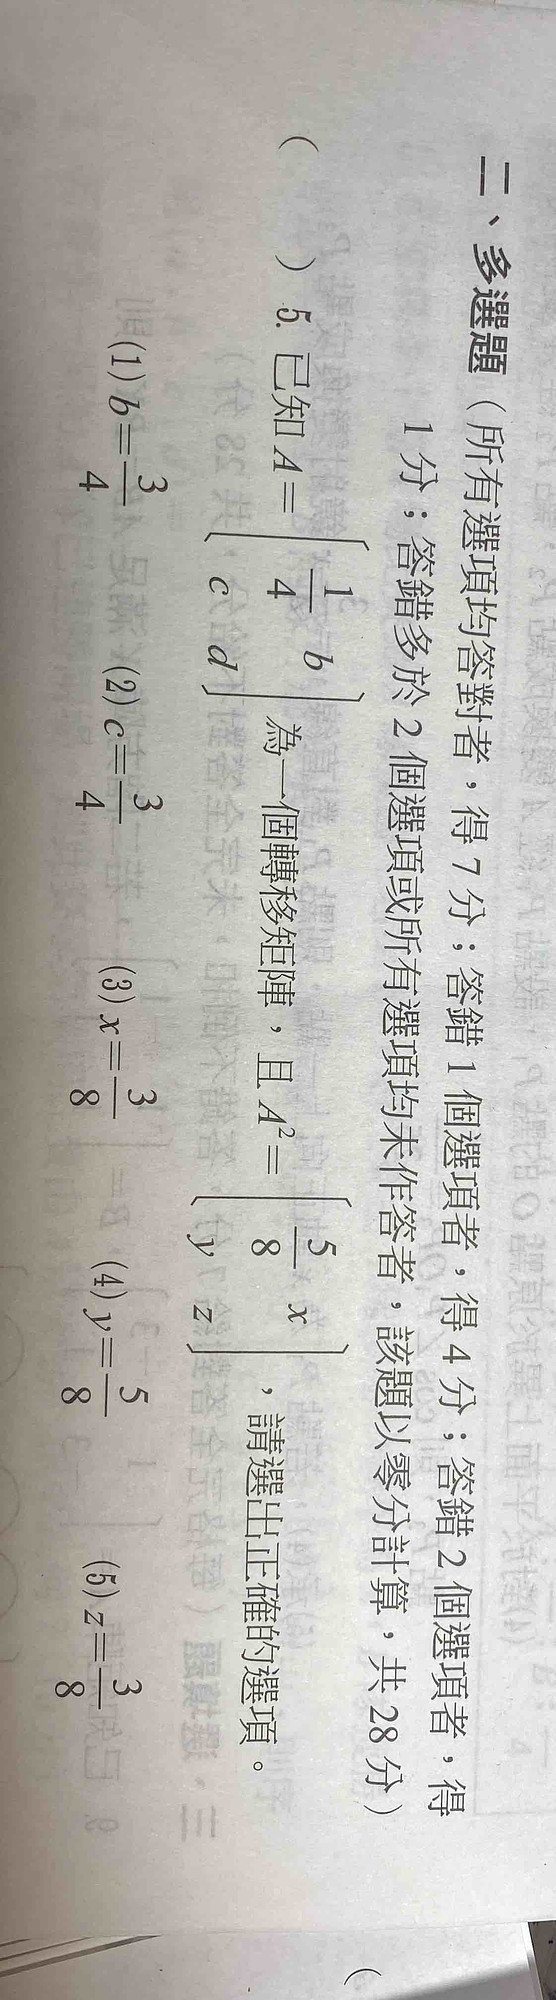 二、多選題（所有選項均答對者，得 7 分；答錯 1 個選項者，得 4 分；答錯 2 個選項者，得
1 分；答錯多於 2 個選項或所有選項均未作答者，該題以零分計算，共 28 分）
（　　）5. 已知 A = [ 1/4 b ; c d ] 為一個轉移矩陣，且 A² = [ 5/8 x ; y z ]，請選出正確的選項。
(1) b = 3/4 (2) c = 3/4 (3) x = 3/8 (4) y = 5/8 (5) z = 3/8